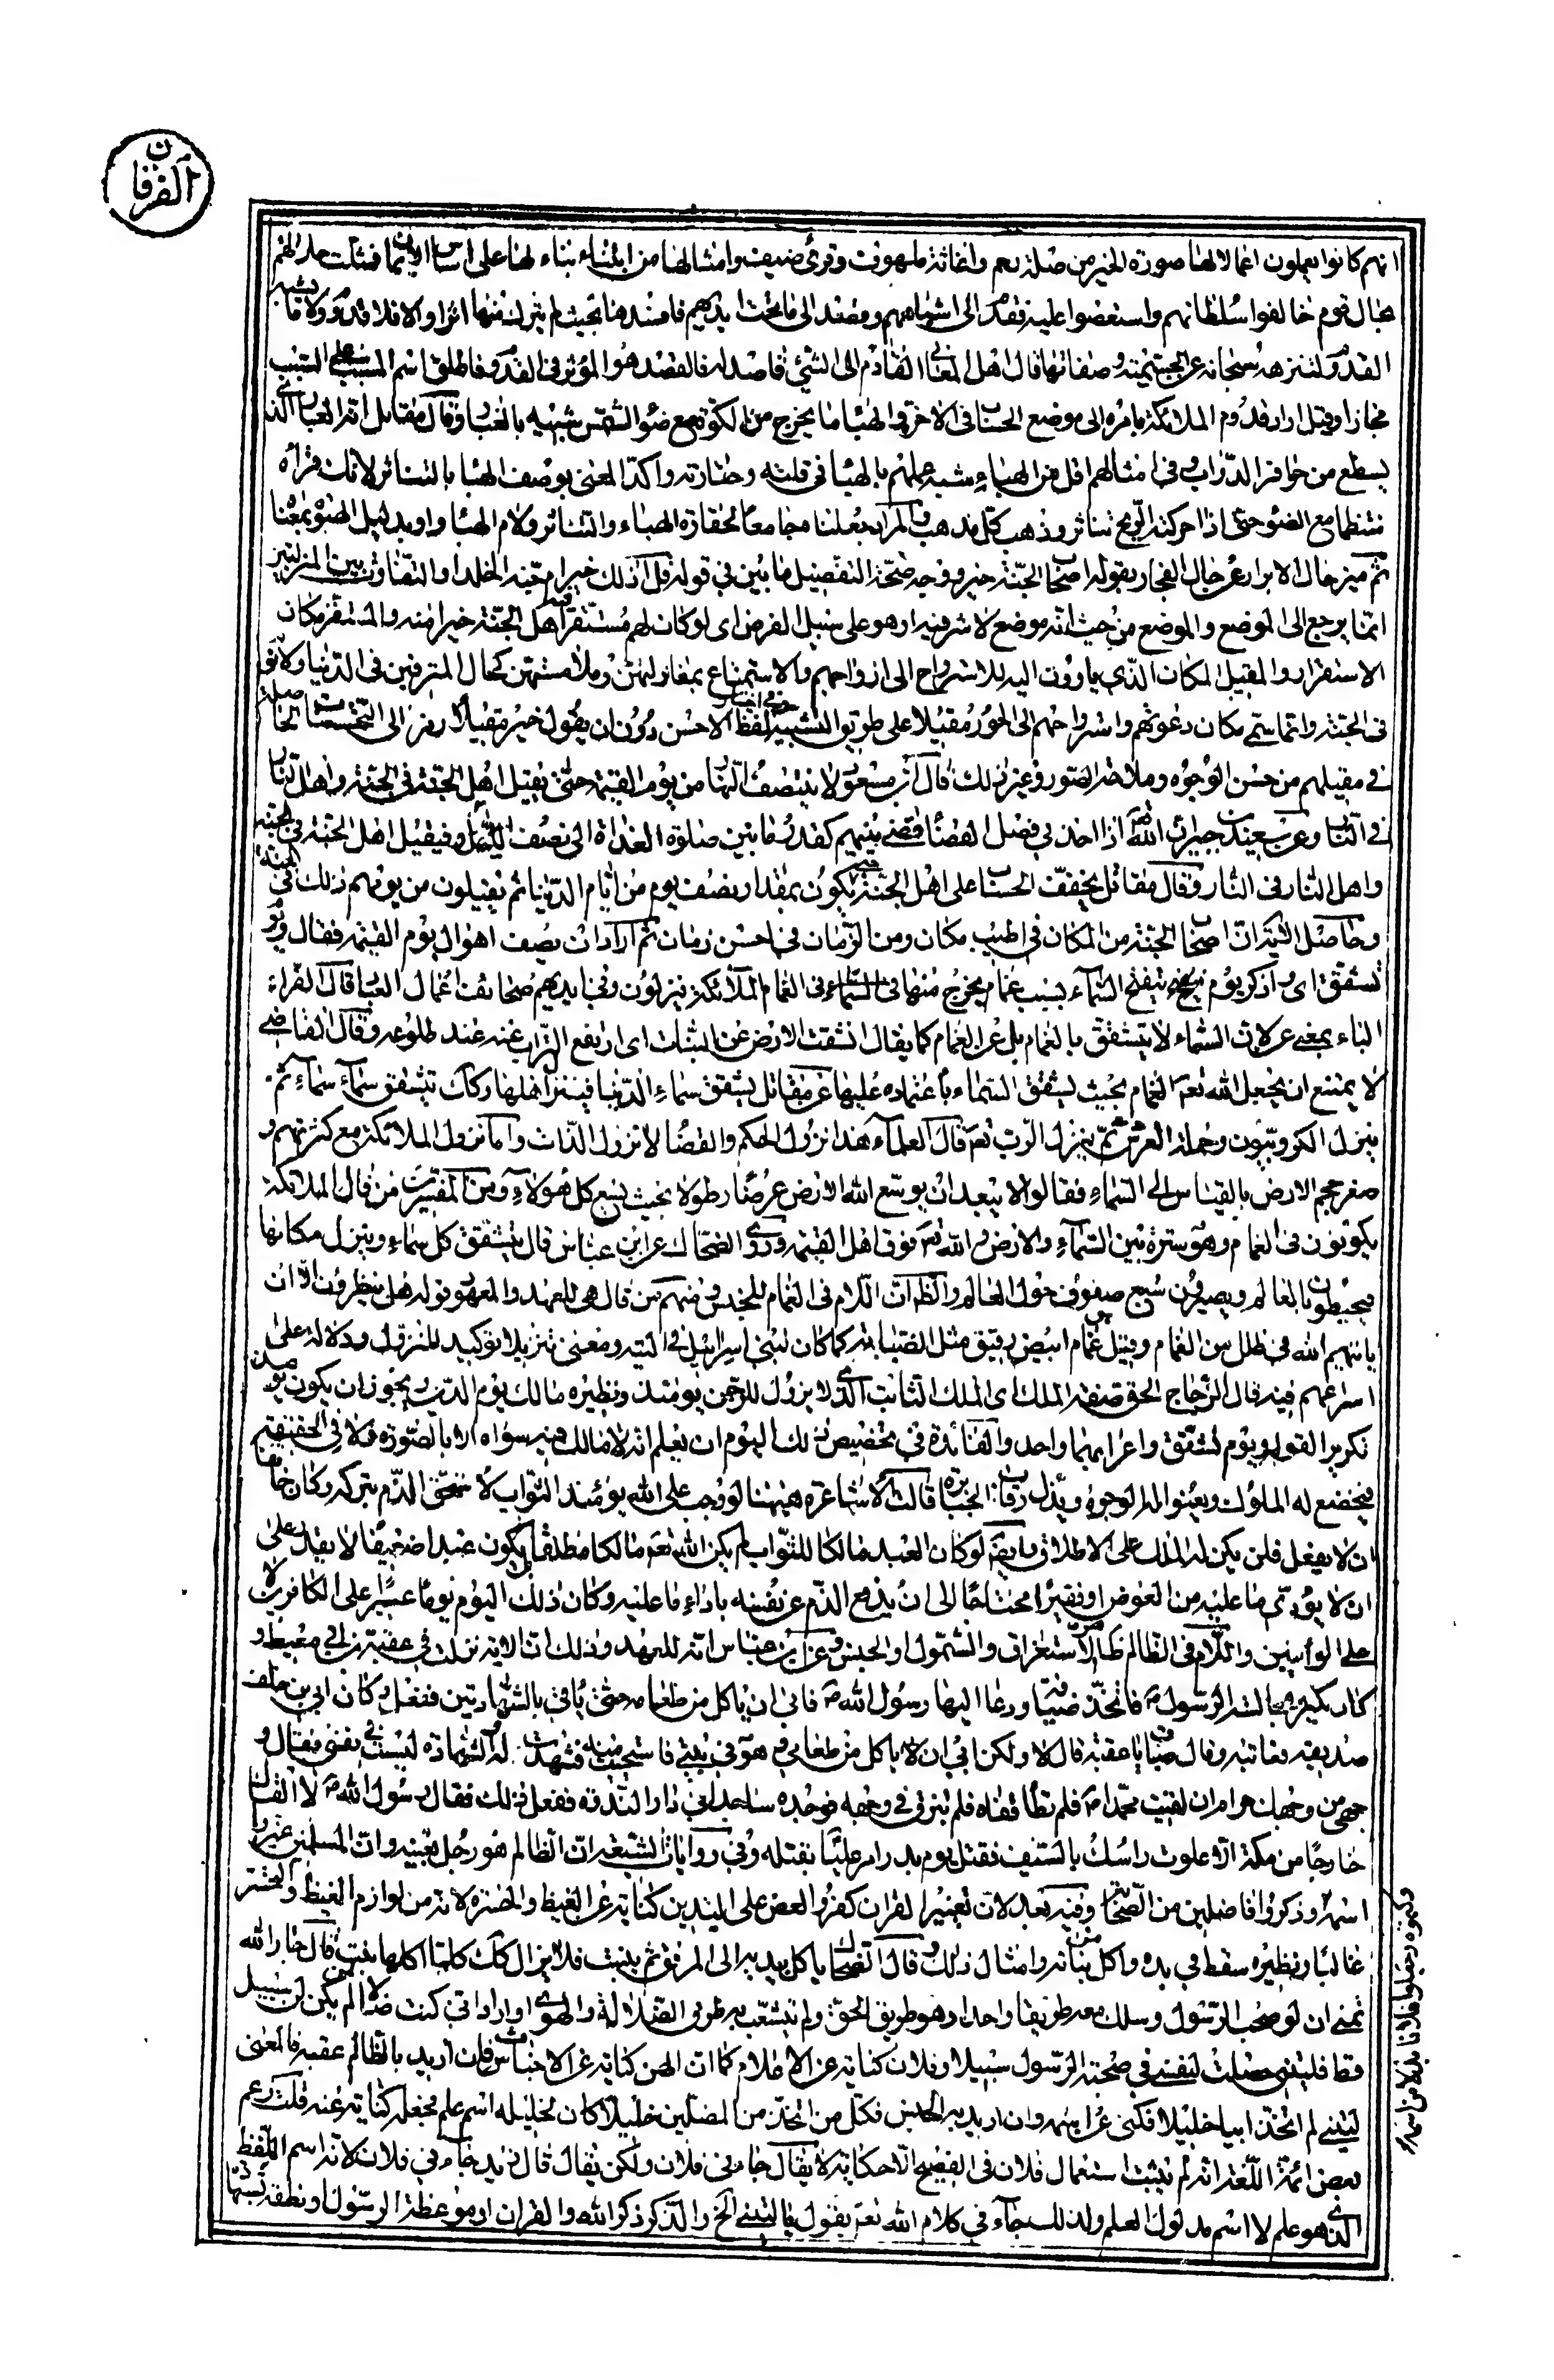 الفرقان
انهم كانوا يعملون اعمالا لها صورة الخير من صلة رحم واغاثة ملهوف وقرى ضيف وامثالها من ابتناء بناء لها على اساس الايمان فمثلت حالهم
بحال قوم خالفوا سلطانهم واستعصوا عليه فقدم الى اشيائهم وقصد الى ما تحت ايديهم فافسدها بحيث لم يترك منها اثرا والا فلا قدوم ولا ما يشبه
القدوم لتنزهه سبحانه عن الجسمية وصفاتها قال اهل المعاني القادم الى الشئ قاصد له فالقصد هو المؤثر في القدوم فاطلق اسم المسبب على السبب
مجازا وقيل اراد قدوم الملائكة بامره الى موضع الحساب في الاخرة والهباء ما يخرج من الكوة مع ضوء الشمس شبيه بالغبار وقال مقاتل انه الغبار الذي
يسطع من حوافر الدواب وفي امثالهم اقل من الهباء شبه عملهم بالهباء في قلته وحقارته واكد المعنى بوصف الهباء بالتناثر لانك تراه
منتظما مع الضوء حتى اذا حركته الريح تناثر وذهب كل مذهب والمراد جعلناه جامعا لحقارة الهباء والتناثر ولام الهباء واو بدليل الهبوة بمعناه
ثم ميز حال الابرار عن حال الفجار بقوله اصحاب الجنة خير ووجه صحة التفضيل ما بين في قوله قل اذلك خير ام جنة الخلد او التفاوت بين المنزلتين
انما يرجع الى الموضع والموضع من حيث انه موضع لا شر فيه او هو على سبيل الفرض اى لو كان لهم مستقر اهل الجنة خيرا منه والمستقر مكان
الاستقرار والمقيل المكان الذي ياوون اليه للاسترواح الى ازواجهم والاستمتاع بمغازلتهن وملامستهن كحال المترفين في الدنيا ولا نوم
في الجنة وانما سمى مكان دعوتهم واسترواحهم الى الحور مقيلا على طريق التشبيه وفي اختيار لفظ الاحسن دون ان يقول خير مقيلا رمز الى التحسينات الحاصلة
في مقيلهم من حسن الوجوه وملاحة الصور وغير ذلك قال ابن مسعود لا ينتصف النهار من يوم القيمة حتى يقيل اهل الجنة في الجنة واهل النار
في النار وعن سعيد بن جبير ان الله اذا اخذ في فصل القضاء قضى بينهم كقدر ما بين صلوة الغداة الى نصف النهار فيقيل اهل الجنة في الجنة
واهل النار في النار وقال مقاتل يخفف الحساب على اهل الجنة حتى يكون بمقدار نصف يوم من ايام الدنيا ثم يقيلون من يومهم ذلك في الجنة
وحاصل الاية ان اصحاب الجنة من المكان في اطيب مكان ومن الزمان في احسن زمان ثم اراد ان يصف اهوال يوم القيمة فقال ويوم
تشقق اى واذكر يوم تتفتح السماء بسبب غمام يخرج منها وفي الغمام الملائكة ينزلون وفي ايديهم صحائف اعمال العباد قال الفراء
الباء بمعنى عن لان السماء لا يتشقق بالغمام بل عن الغمام كما يقال انشقت الارض عن النبات اى ارتفع التراب عنه عند طلوعه وقال القاضي
لا يمتنع ان يجعل الله تعم الغمام بحيث يشقق السماء باعتماده عليها عن مقاتل يشقق سماء الدنيا فينزل اهلها وكذلك تتشقق سماء سماء ثم
ينزل الكروبيون وحملة العرش ثم ينزل الرب تعم قال العلماء هذا نزول الحكم والقضاء لا نزول الذات واما نزول الملائكة مع كثرتهم و
صغر حجم الارض بالقياس الى السماء فقالوا لا يبعد ان يوسع الله الارض عرضا وطولا بحيث يسع كل هؤلاء ومن المفسرين من قال الملائكة
يكونون في الغمام وهو سترة بين السماء والارض والله تعم فوق اهل القيمة وروى الضحاك عن ابن عباس قال يتشقق كل سماء وينزل مكانها
فيحيطون بالعالم ويصيرون سبع صفوف حول العالم والظاهر ان اللام في الغمام للجنس ومنهم من قال هي للعهد والمعهود قوله هل ينظرون الا ان
ياتيهم الله في ظلل من الغمام وقيل هو غمام ابيض رقيق مثل الضبابة كما كان لبني اسرائيل في التيه ومعنى تنزيلا توكيد للنزول ودلالة على
اسراعهم فيه قال الزجاج الحق صفة الملك اى الملك الثابت الذى لا يزول للرحمن يومئذ ونظيره مالك يوم الدين ويجوز ان يكون يومئذ
تكريرا لقوله ويوم تشقق واعرابهما واحد والفائدة في تخصيص ذلك اليوم ان يعلم انه لا مالك فيه سواه لا بالصورة ولا في الحقيقة
فيخضع له الملوك ويعنوا له الوجوه ويذل رقاب الجبابرة قالت الاشاعرة ههنا لو وجب على الله يومئذ الثواب لاستحق الذم بتركه وكان خائفا
ان لا يفعل فلن يكن له الملك على الاطلاق وايضا لو كان العبد مالكا للثواب لم يكن الله تعم مالكا مطلقا بل يكون عبدا ضعيفا لا يقدر على
ان لا يؤدى ما عليه من العوض او فقيرا محتاجا الى ان يدفع الذم عن نفسه باداء ما عليه وكان ذلك اليوم يوما عسيرا على الكافرين لا
على المؤمنين واللام في الظالم ظاهره الاستغراق والشمول او الجنس وعن ابن عباس انه للعهد وذلك ان الاية نزلت في عقبة بن ابي معيط و
كان يكثر مجالسة الرسول ص فاتخذ ضيافة ودعا اليها رسول الله ص فابى ان ياكل من طعامه حتى ياتي بالشهادتين ففعل وكان ابي بن خلف
صديقه فعاتبه وقال صبات يا عقبة قال لا ولكن ابى ان لا ياكل من طعامي وهو في بيتي فاستحييت منه فشهدت له والشهادة ليست في نفسي فقال
وجهي من وجهك حرام ان لقيت محمدا ص فلم تطأ قفاه فلم تبزق في وجهه فوجده ساجدا في دار الندوة ففعل ذلك فقال رسول الله ص لا القاك
خارجا من مكة الا علوت راسك بالسيف فقتل يوم بدر امر عليا بقتله وفي روايات الشيعة ان الظالم هو رجل بعينه وان المسلمين غيروا
اسمه وذكروا فاضلين من الصحابة وفيه بعد لان تغيير القران كفر والعض على اليدين كناية عن الغيظ والحسرة لانه من لوازم الغيظ والتحسر
غالبا ونظيره سقط في يده واكل من بنانه وامثال ذلك وقال الضحاك ياكل يديه الى المرفق ثم ينبت فلا يزال كذلك كلما اكلها نبتت قال جار الله
تمنى ان لو صحب الرسول وسلك معه طريقا واحدا وهو طريق الحق ولم يتشعب به طرق الضلالة والهوى او اراد اني كنت ضالا لم يكن لي سبيل
قط فليتني حصلت لنفسي في صحبة الرسول سبيلا وفلان كناية عن الاعلام كما ان الهن كناية عن الاجناس فان اريد بالظالم عقبة فالمعنى
ليتني لم اتخذ ابيا خليلا فكنى عن اسمه وان اريد به الجنس فكل من اتخذ من المضلين خليلا كان لخليله اسم علم فجعله كناية عنه قلت زعم
بعض ائمة اللغة انه لم يثبت استعمال فلان في الفصيح الا حكاية لا يقال جاءني فلان ولكن يقال قال زيد جاءني فلان لانه اسم اللفظ
الذى هو علم لا اسم مدلول العلم ولذلك جاء في كلام الله تعم يقول يا ليتني الخ والذكر ذكر الله والقران او موعظة الرسول او نطقه بشهادة